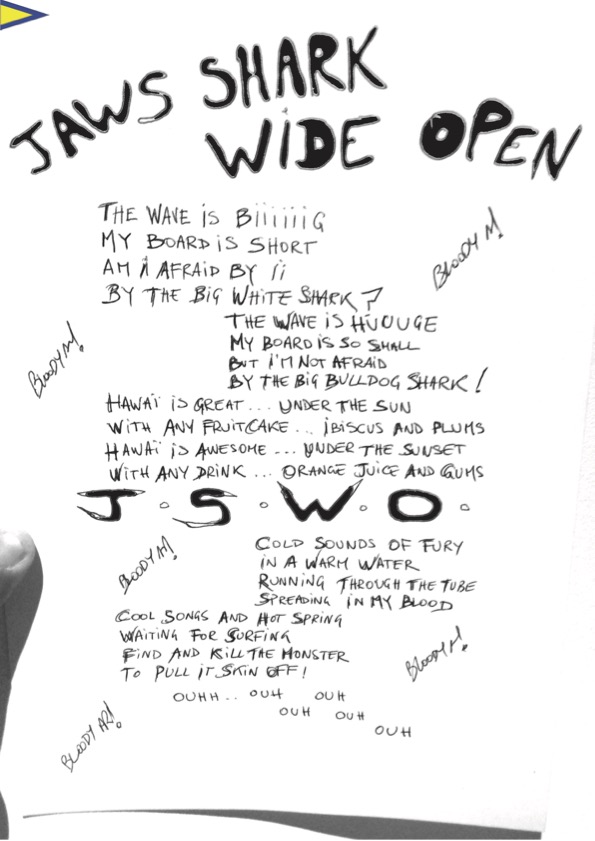 JAWS SHARK
WIDE OPEN
THE WAVE iS BiiiiiiG
MY BOARD iS SHORT
AM i AFRAiD BY ii
BY THE BiG WHiTE SHARK ?
BLOODY M!
THE WAVE iS HUOUGE
MY BOARD iS SO SMALL
BUT I'M NOT AFRAiD
BY THE BiG BULLDOG SHARK !
BLOODY M!
HAWAï iS GREAT ... UNDER THE SUN
WiTH ANY FRUiTCAKE ... iBiSCUS AND PLUMS
HAWAï iS AWESOME ... UNDER THE SUNSET
WiTH ANY DRiNK ... ORANGE JUiCE AND GUMS
J.S.W.O.
COLD SOUNDS OF FURY
iN A WARM WATER
RUNNiNG THROUGH THE TUBE
SPREADiNG iN MY BLOOD
BLOODY M!
COOL SONGS AND HOT SPRiNG
WAiTiNG FOR SURFiNG
FiND AND KiLL THE MONSTER
TO PULL iT SKiN OFF !
BLOODY M!
OUHH .. OUH OUH
OUH OUH
OUH
BLOODY